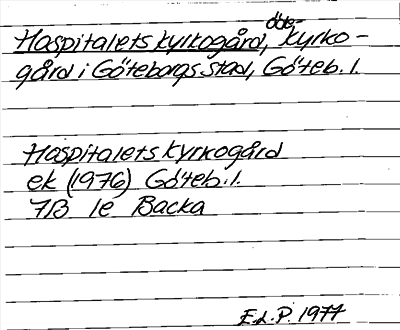 Hospitalets kyrkogård, öde- kyrko-
gård i Göteborgs stad, Göteb. l.
Hospitalets kyrkogård
ek (1976) Göteb. l.
7B 1e Backa
E.L.P. 1977